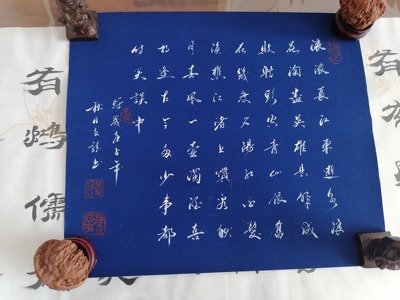 滚滚長江東逝水浪
花淘盡英雄是非成
敗轉頭空青山依舊
在幾度夕陽紅白髮
漁樵江渚上慣看秋
月春風一壺濁酒喜
相逢古今多少事都
付笑談中
歲庚子年
書
有鴻儒